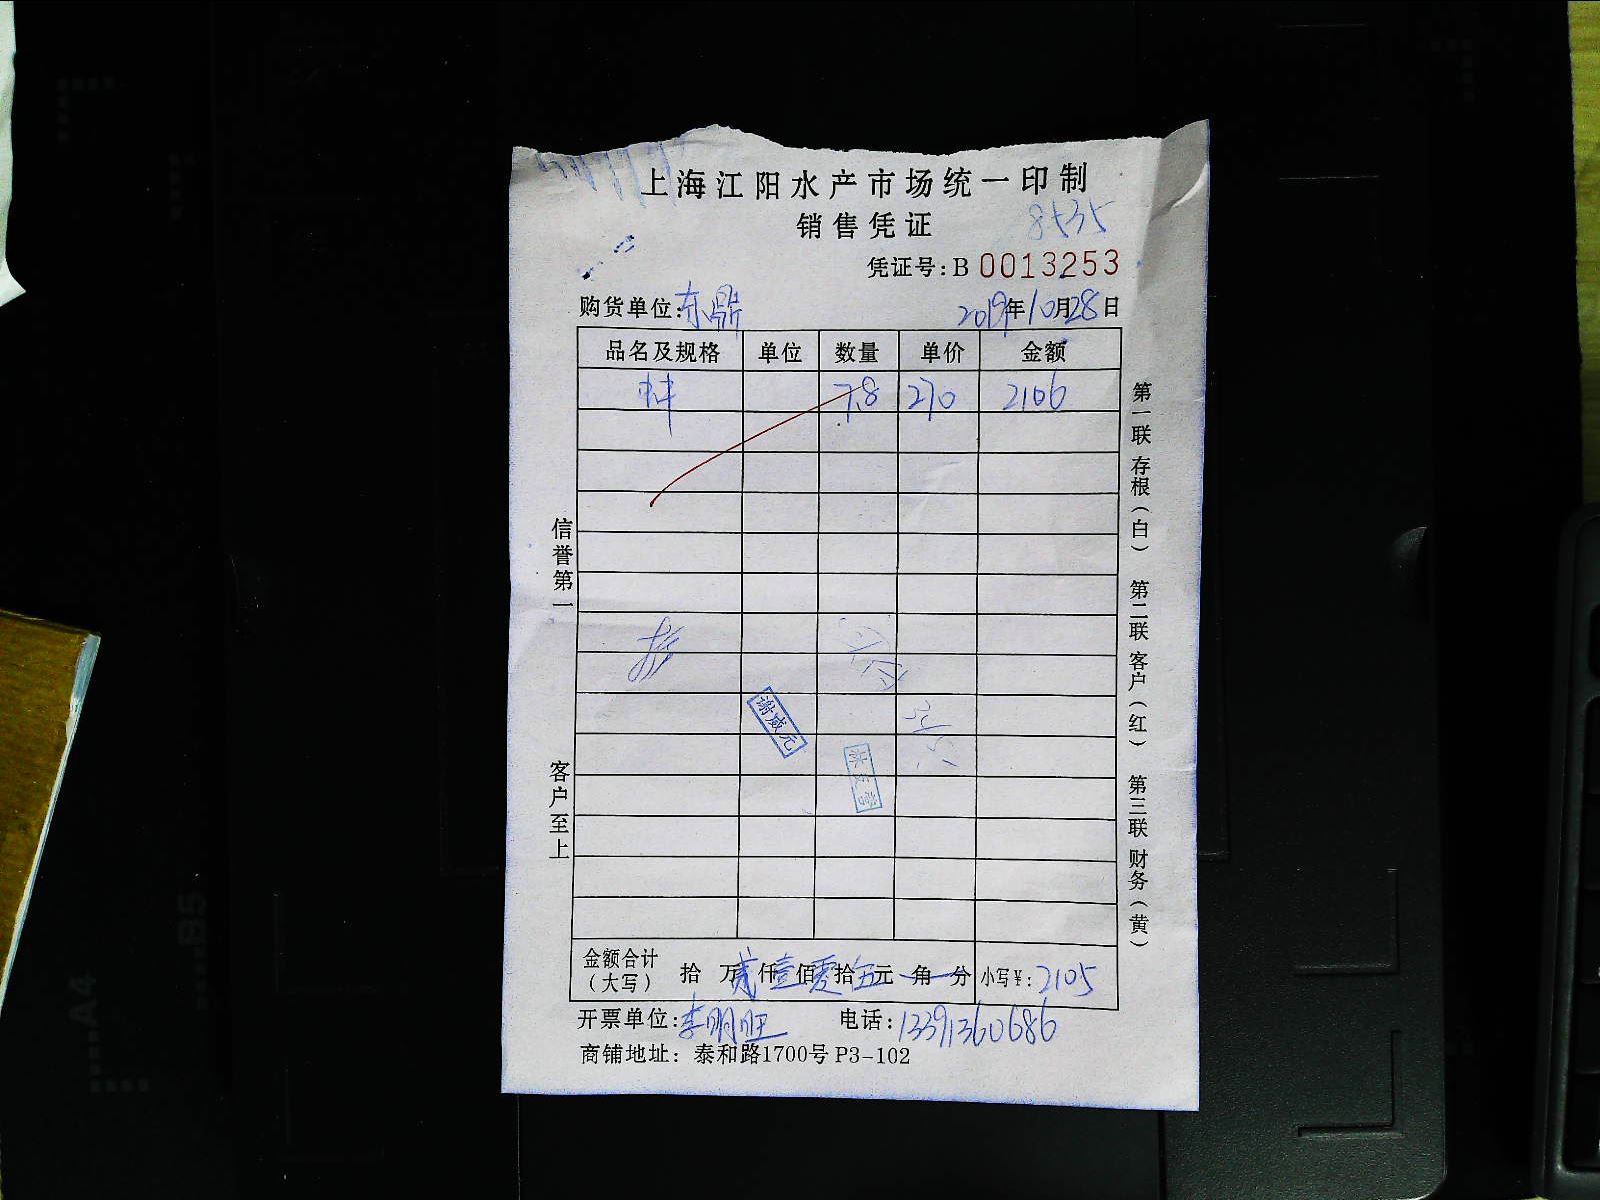 上海江阳水产市场统一印制
销售凭证
8535
凭证号:B 0013253
购货单位:东鼎 2019年10月28日
品名及规格 单位 数量 单价 金额
7.8 270 2106
信誉第一
客户至上
谢威元
金额合计(大写) 拾 万贰仟壹佰零拾伍元 角 分 小写¥:2105
开票单位:李明旺 电话:13391360686
商铺地址: 泰和路1700号 P3-102
第一联 存根(白) 第二联 客户(红) 第三联 财务(黄)
A4
B5